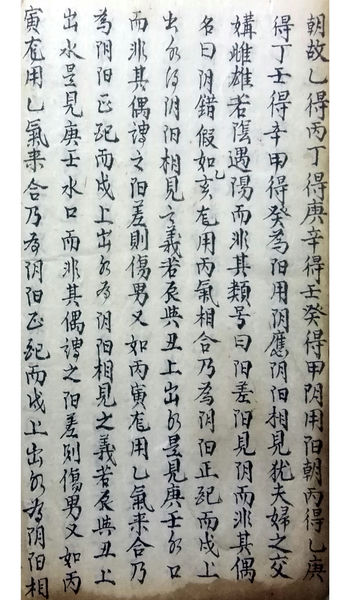 朝故乙得丙丁得庚辛得壬癸得甲阴用阳朝丙得乙庚
得丁壬得辛甲得癸為阳用阴應阴阳相見犹夫婦之交
媾雌雄若陰遇陽而非其類号曰阳差阳見阴而非其偶
名曰阴錯假如乙亥竜用丙氣相合乃為阴阳正紀而戌上
出水为阴阳相見之義若辰與丑上出水是見庚壬水口
而非其偶谓之阳差則傷男又如丙寅竜用乙氣来合乃
為阴阳正紀而戌上出水为阴阳相見之義若辰與丑上
出水是見庚壬水口而非其偶谓之阳差则傷男又如丙
寅竜用乙氣来合乃为阴阳正紀而戌上出水为阴阳相